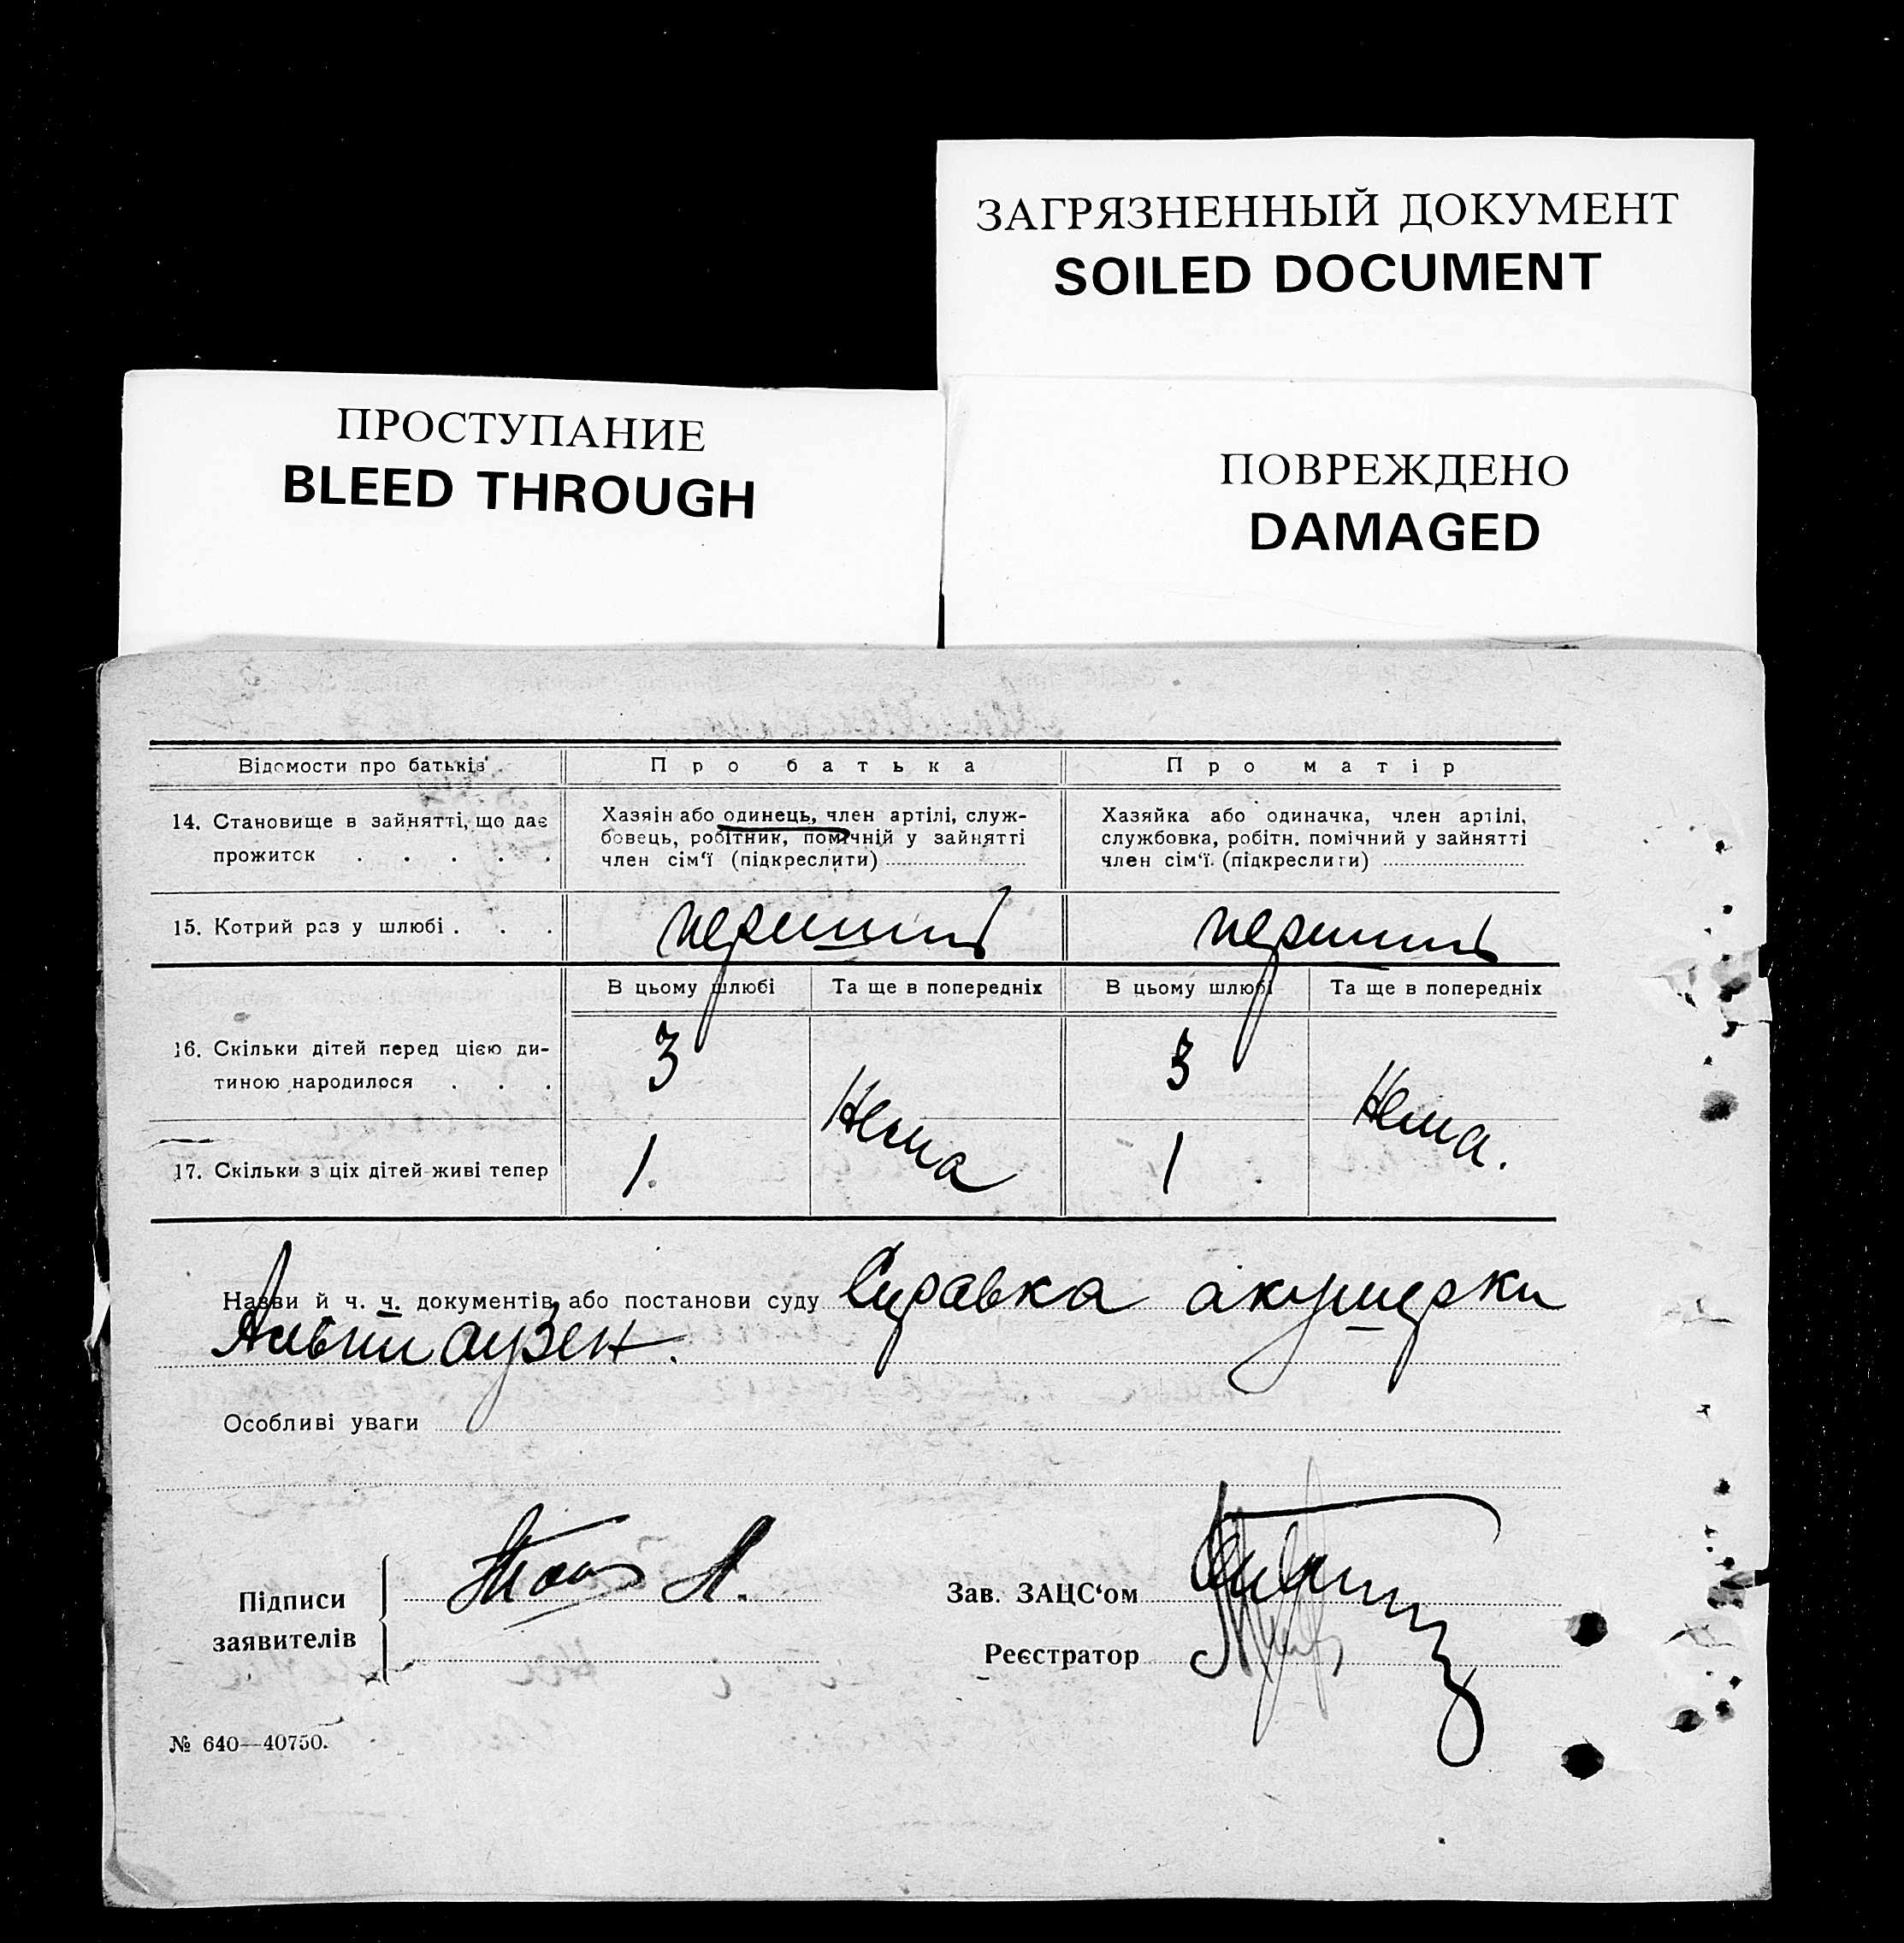 ЗАГРЯЗНЕННЫЙ ДОКУМЕНТ
SOILED DOCUMENT
ПРОСТУПАНИЕ
BLEED THROUGH
ПОВРЕЖДЕНО
DAMAGED
Відомости про батьків
Про батька
Про матір
14. Становище в зайнятті, що дає
прожиток . . . . .
Хазяїн або одинець, член артілі, служ-
бовець, робітник, помічній у зайнятті
член сім‘ї (підкреслити)
Хазяйка або одиначка, член артілі,
службовка, робітн. помічний у зайнятті
член сім‘ї. (підкреслити)
15. Котрий раз у шлюбі . . .
перший
перший
В цьому шлюбі
Та ще в попередніх
В цьому шлюбі
Та ще в попередніх
16. Скільки дітей перед цією ди-
тиною народилося . . .
3
Нема
3
Нема.
17. Скільки з ціх дітей живі тепер
1.
1
Назви й ч. ч. документів або постанови суду Справка акушерки
Особливі уваги
Підписи
заявителів
Зав. ЗАЦС‘ом
Реєстратор
№ 640—40750.